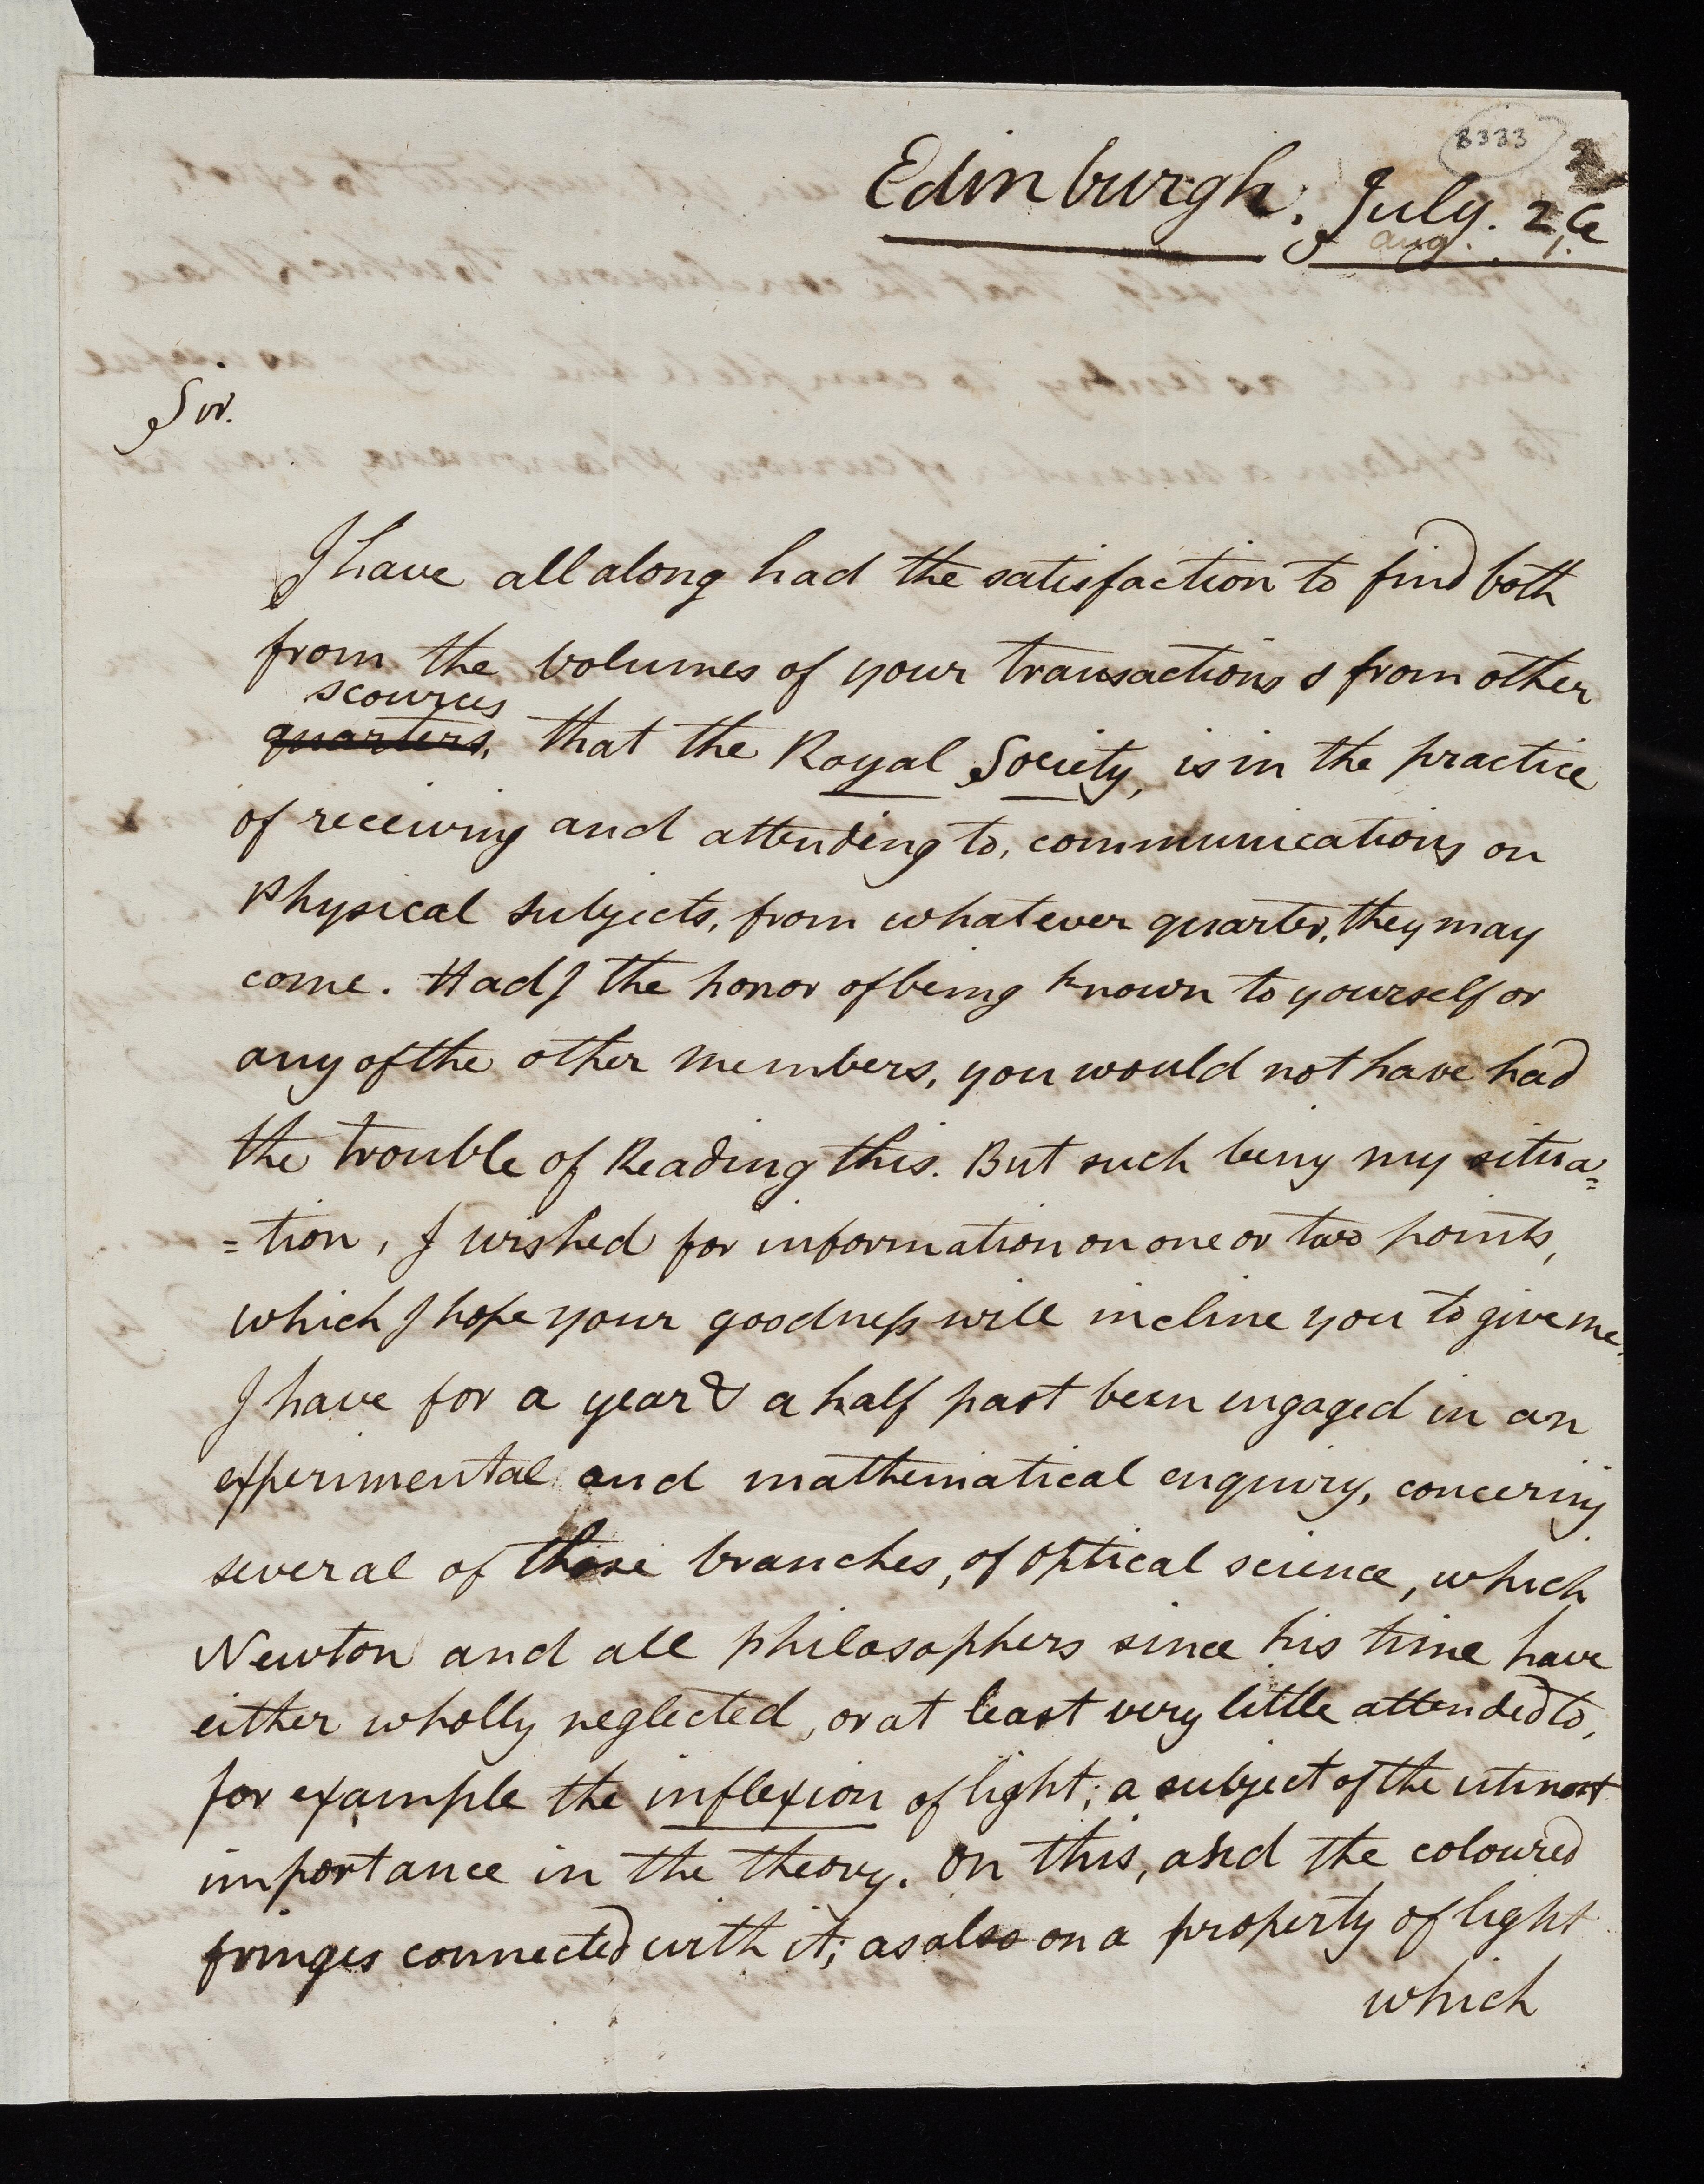 8333
Edinburgh. July. 26
aug. 1.
Sir.
I have all along had the satisfaction to find both
from the volumes of your transactions & from other
scources
quarters, that the Royal Society, is in the practice
of receiving and attending to, communications on
Physical subjects, from whatever quarter, they may
come. Had I the honor of being known to yourself or
any of the other members, you would not have had
the trouble of Reading this. But such being my situa=
=tion, I wished for information on one or two points,
which I hope your goodness will incline you to give me.
I have for a year & a half past been engaged in an
experimental and mathematical enquiry, concerning
several of those branches, of optical science, which
Newton and all philosophers since his time have
either wholly neglected, or at least very little attended to,
for example the inflexion of light; a subject of the utmost
importance in the theory. On this, and the coloured
fringes connected with it; as also on a property of light
which